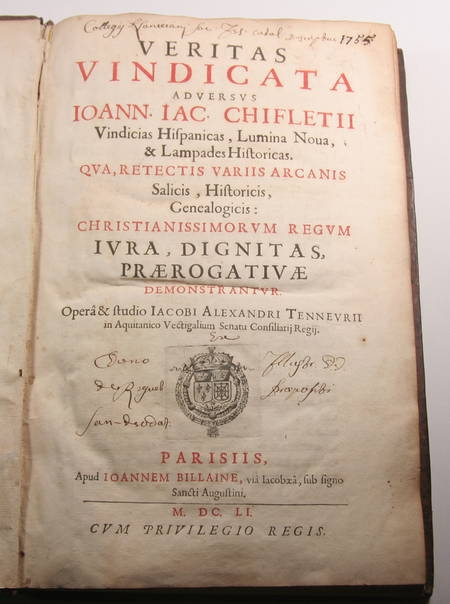 1755
VERITAS
VINDICATA
ADVERSVS
IOANN. IAC. CHIFLETII
Vindicias Hispanicas, Lumina Noua,
& Lampades Historicas.
QVA, RETECTIS VARIIS ARCANIS
Salicis, Historicis,
Genealogicis:
CHRISTIANISSIMORVM REGVM
IVRA, DIGNITAS,
PRÆROGATIVÆ
DEMONSTRANTVR.
Operâ & studio IACOBI ALEXANDRI TENNEVRII
in Aquitanico Vectigalium Senatu Consiliarij Regij.
Dono
PARISIIS,
Apud IOANNEM BILLAINE, viâ Iacobæâ, sub signo
Sancti Augustini.
M. DC. LI.
CVM PRIVILEGIO REGIS.